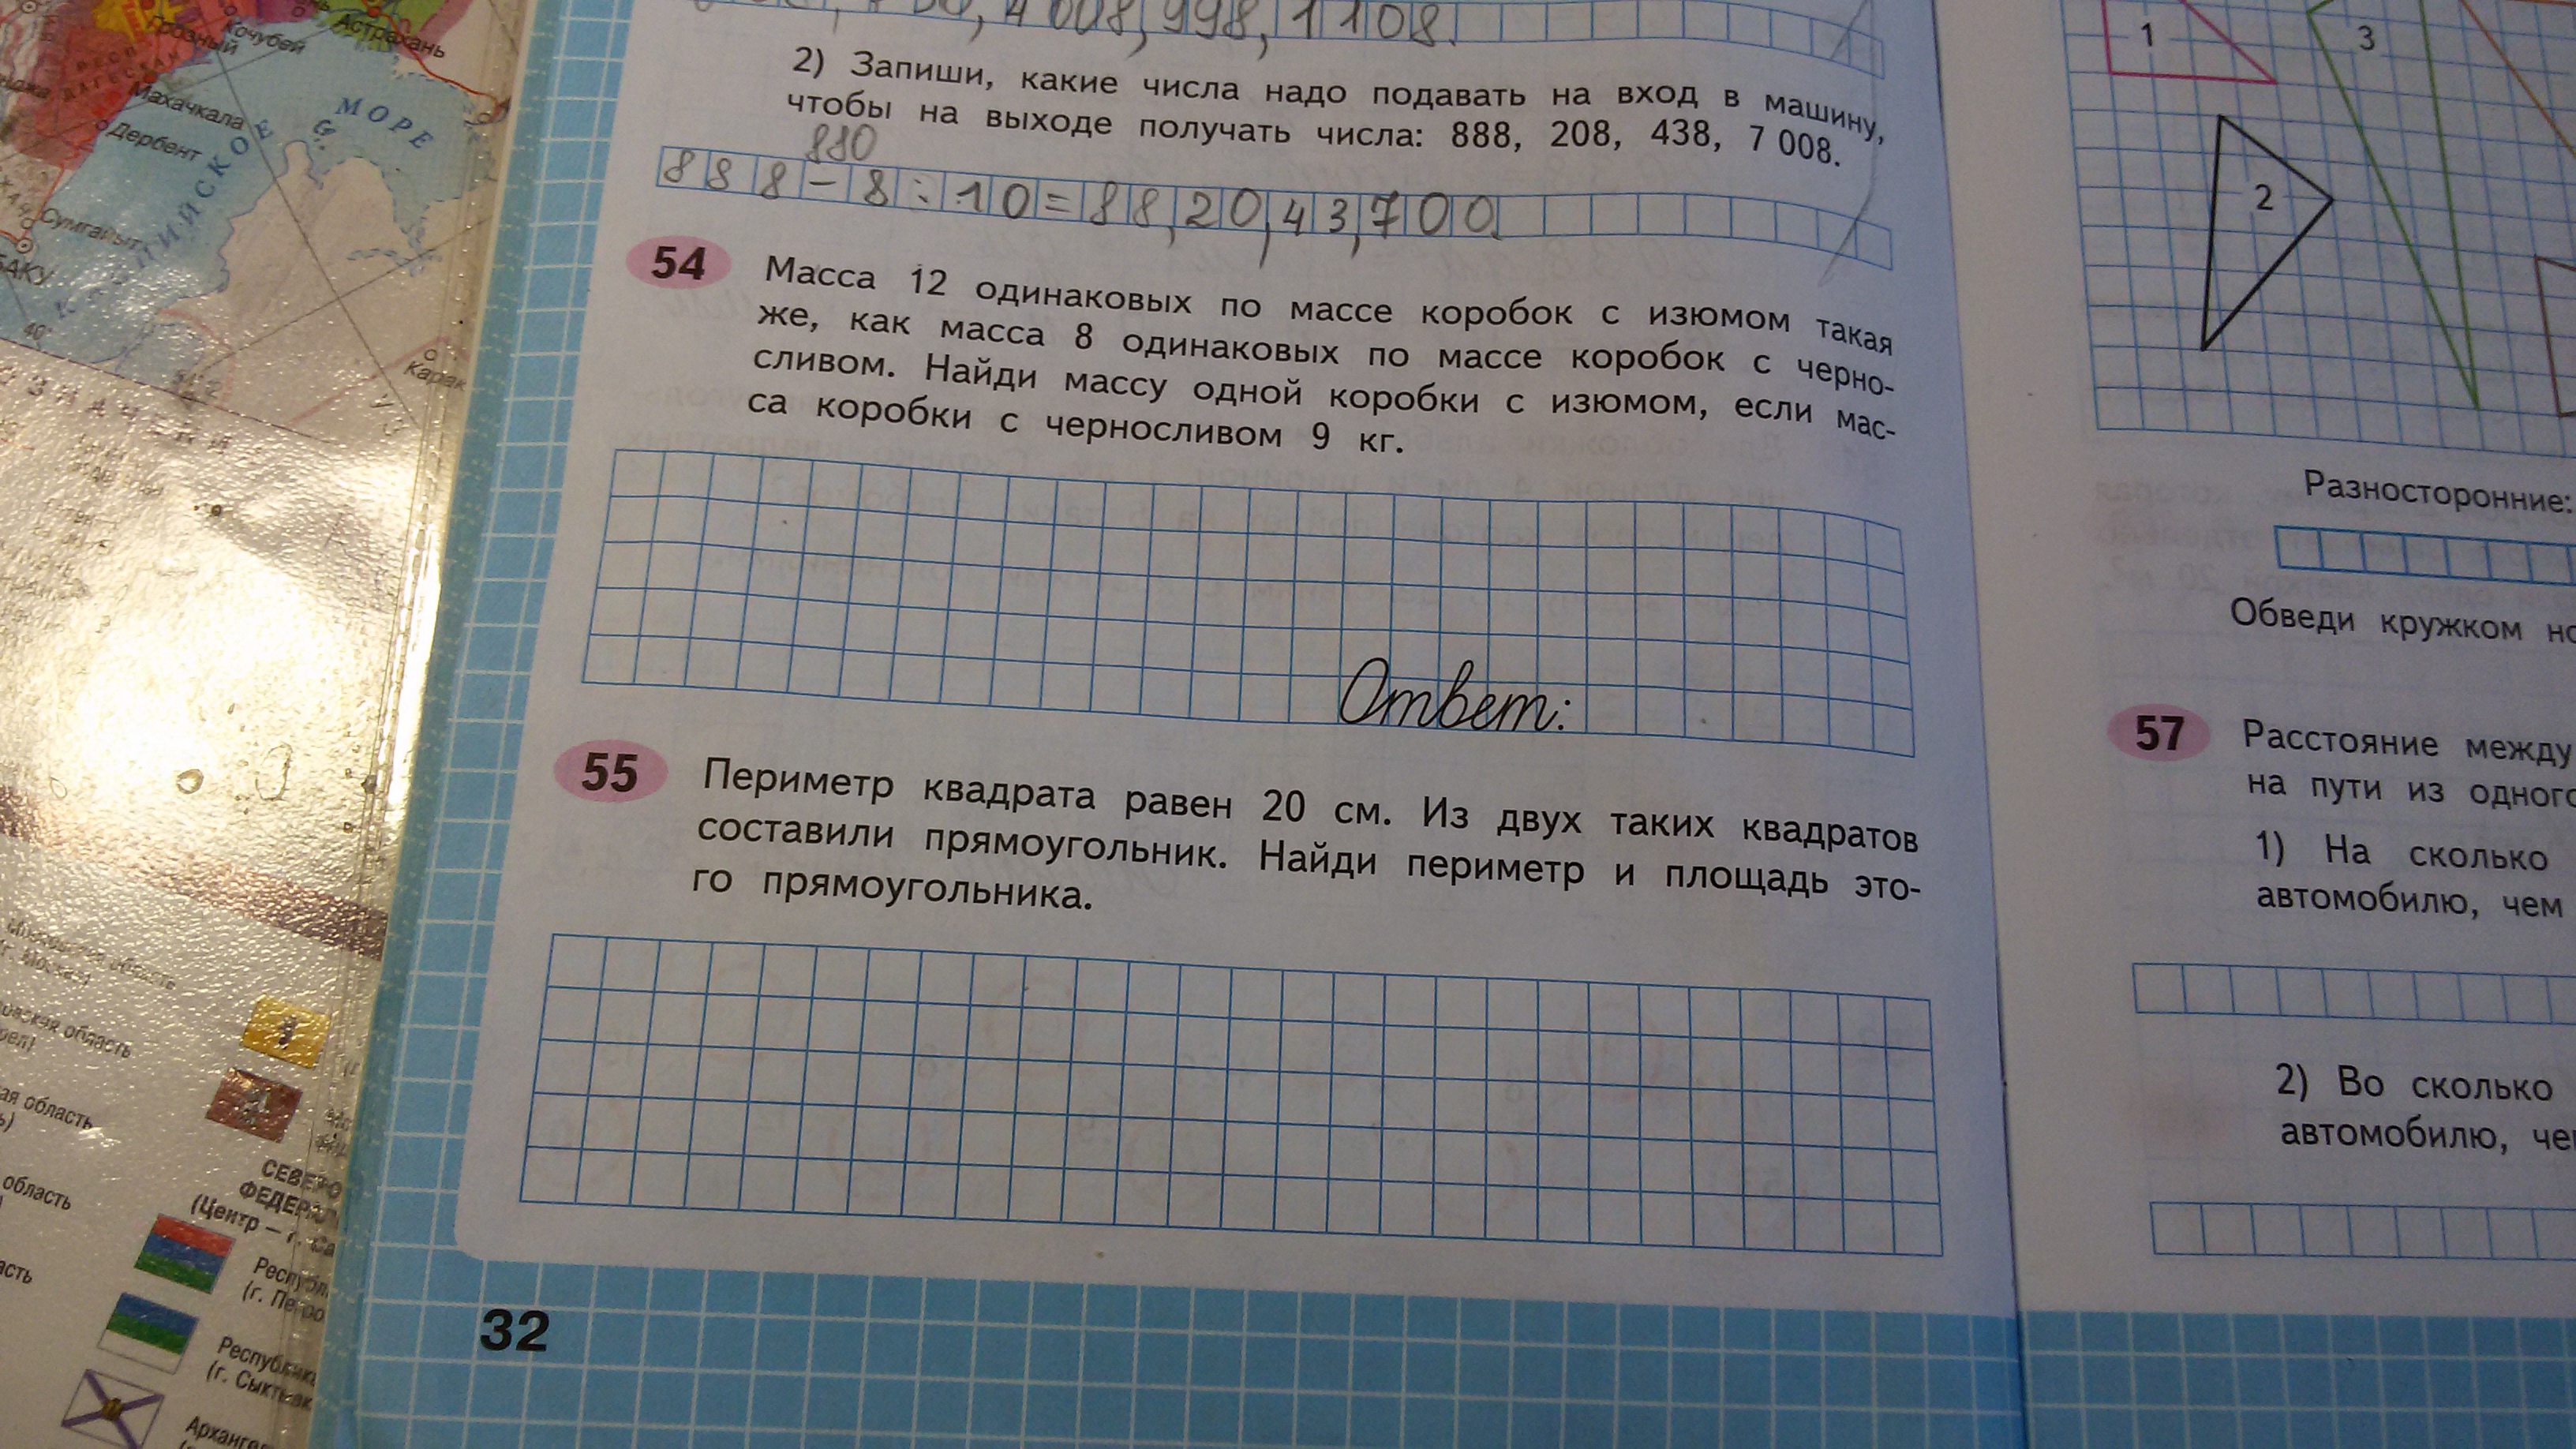 Грозный
Кочубей
Астрахань
РЕСП.
ДАГЕСТАН
Махачкала
Дербент
МОРЕ
КАСПИЙСКОЕ
Сумгаит
БАКУ
40°
4 008, 998, 1108.
2) Запиши, какие числа надо подавать на вход в машину,
чтобы на выходе получать числа: 888, 208, 438, 7 008.
880
888-8:10=88,20,43,700.
54 Масса 12 одинаковых по массе коробок с изюмом такая
же, как масса 8 одинаковых по массе коробок с черно-
сливом. Найди массу одной коробки с изюмом, если мас-
са коробки с черносливом 9 кг.
Ответ:
55 Периметр квадрата равен 20 см. Из двух таких квадратов
составили прямоугольник. Найди периметр и площадь это-
го прямоугольника.
32
область
область
область
область
СЕВЕРО
ФЕДЕРАЛ
(Центр — г. Са
Республ
(г. Петро
Республика
(г. Сыктывк
Арханге
1
2
3
Разносторонние:
Обведи кружком но
57 Расстояние между
на пути из одного
1) На сколько
автомобилю, чем
2) Во сколько
автомобилю, че